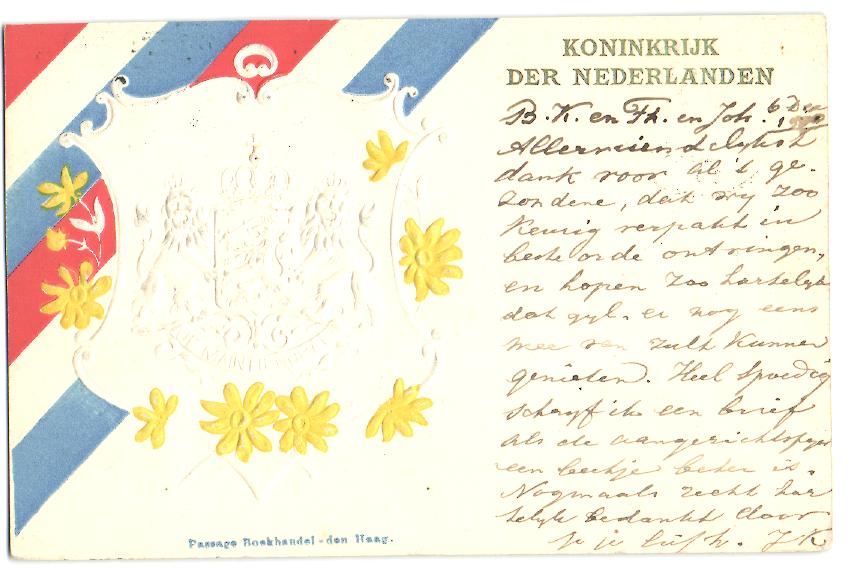 KONINKRIJK
DER NEDERLANDEN
B. K. en Th. en Joh. 6 Dec
Allervriendelykst
dank voor al 't ge-
zondene, dat wy zoo
keurig verpakt in
beste orde ontvingen,
en hopen zoo hartelyk
dat gyl. er nog eens
mee van zult kunnen
genieten. Heel spoedig
schryf ik een brief
als de aangezichtspyn
een beetje beter is.
Nogmaals recht har
telyk bedankt door
je J K
JE MAINTIENDRAI
Passage Boekhandel - den Haag.